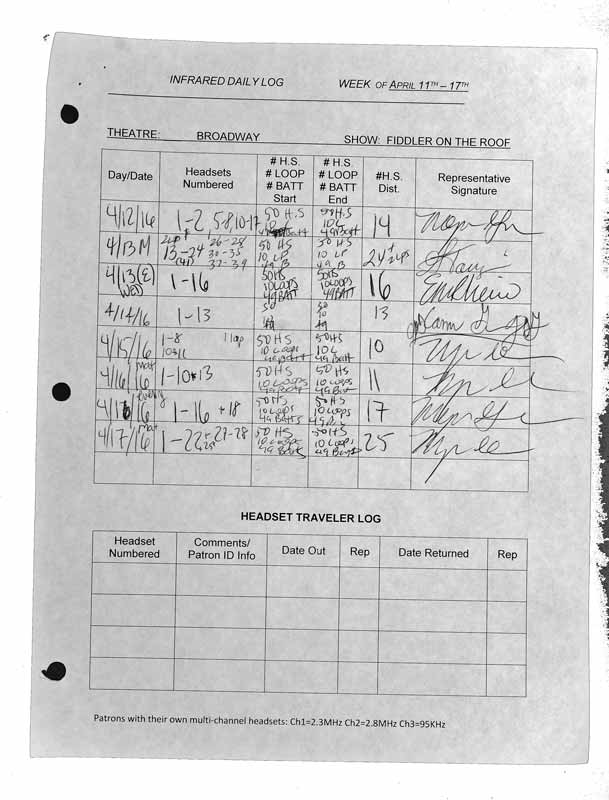 INFRARED DAILY LOG WEEK OF APRIL 11TH – 17TH
THEATRE: BROADWAY SHOW: FIDDLER ON THE ROOF
Day/Date Headsets Numbered # H.S. # LOOP # BATT Start # H.S. # LOOP # BATT End #H.S. Dist. Representative Signature
4/12/16 1-2, 5-8, 10-17 50 H.S 10 L 49 Batt 50 H.S 10 L 49 Batt 14
4/13 M 2LP 13-24 26-28 30-35 37-39 50 HS 10 LP 49 B 50 HS 10 LP 49 B 24 + 2 LPS
4/13 (E) WED 1-16 50 HS 10 LOOPS 49 BATT 50 HS 10 LOOPS 49 BATT 16
4/14/16 1-13 50 10 49 50 10 49 13
4/15/16 1-8 10+11 1 loop 50 HS 10 LOOPS 49 Batt 50 HS 10 L 49 Batt 10
4/16/16 mat 1-10+13 50 HS 10 LOOPS 49 Batt 50 HS 10 LOOPS 49 Batt 11
evening 1-16 +18 50 HS 10 LOOPS 49 BATTS 50 HS 10 LOOPS 49 Batt 17
4/17/16 mat 1-22 + 25 27-28 50 HS 10 LOOPS 49 Batts 50 HS 10 LOOPS 49 Batts 25
HEADSET TRAVELER LOG
Headset Numbered Comments/ Patron ID Info Date Out Rep Date Returned Rep
Patrons with their own multi-channel headsets: Ch1=2.3MHz Ch2=2.8MHz Ch3=95KHz